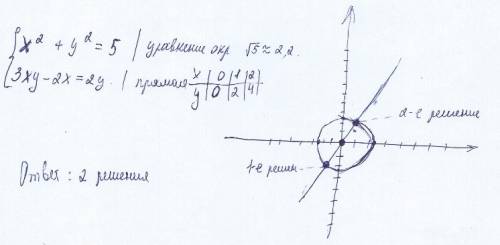 { x² + y² = 5 | уравнение окр. √5 ≈ 2,2.
{ 3xy - 2x = 2y. | прямая x | 0 | 1 | 2
y | 0 | 2 | 4
2-е решение
1-е решен
Ответ: 2 решения